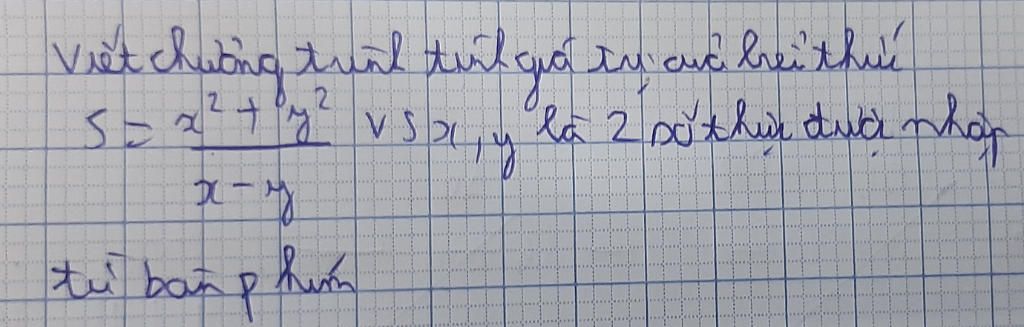 Viết chương trình tính giá trị của biểu thức
S = \frac{x^2 + y^2}{x - y} vs x, y là 2 số thực được nhập
từ bàn phím